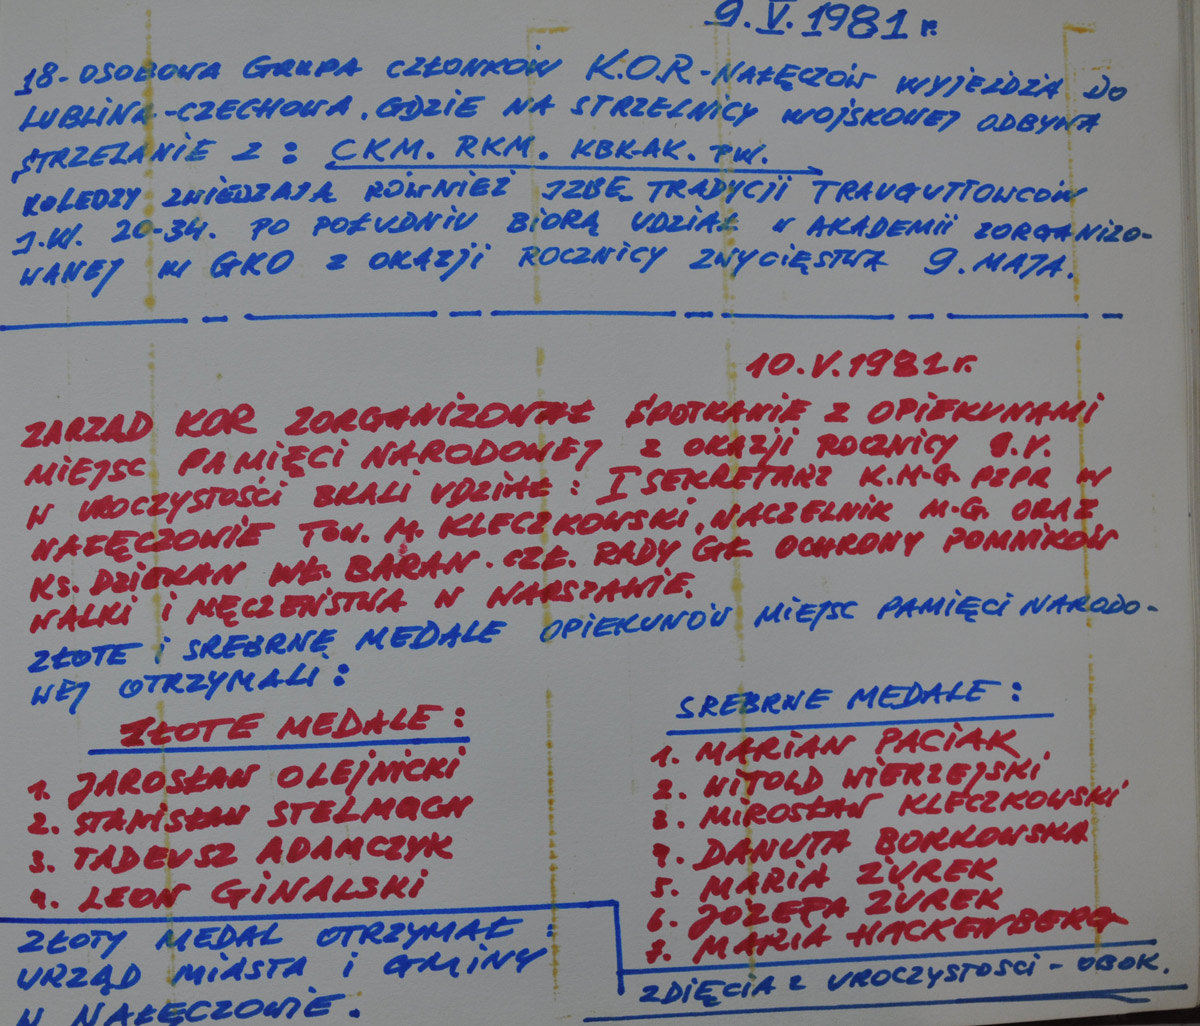 9.V.1981 r.
18-OSOBOWA GRUPA CZŁONKÓW K.O.R-NAŁĘCZÓW WYJEŻDŻA DO
LUBLINA-CZECHOWA, GDZIE NA STRZELNICY WOJSKOWEJ ODBYWA
STRZELANIE Z: CKM. RKM. KBK-AK. PW.
KOLEDZY ZWIEDZAJĄ RÓWNIEŻ IZBĘ TRADYCJI TRAUGUTTOWCÓW
J.W. 20-34. PO POŁUDNIU BIORĄ UDZIAŁ W AKADEMII ZORGANIZO-
WANEJ W GKO Z OKAZJI ROCZNICY ZWYCIĘSTWA 9. MAJA.
10.V.1981 r.
ZARZĄD KOR ZORGANIZOWAŁ SPOTKANIE Z OPIEKUNAMI
MIEJSC PAMIĘCI NARODOWEJ Z OKAZJI ROCZNICY 9.V.
W UROCZYSTOŚCI BRALI UDZIAŁ: I SEKRETARZ K.M-G. PZPR W
NAŁĘCZOWIE TOW. M. KLECZKOWSKI, NACZELNIK M-G. ORAZ
KS. DZIEKAN WŁ. BARAN. CZŁ. RADY GŁ. OCHRONY POMNIKÓW
WALKI I MĘCZEŃSTWA W WARSZAWIE.
ZŁOTE I SREBRNE MEDALE OPIEKUNÓW MIEJSC PAMIĘCI NARODO-
WEJ OTRZYMALI:
ZŁOTE MEDALE:
1. JAROSŁAW OLEJNICKI
2. STANISŁAW STELMACH
3. TADEUSZ ADAMCZYK
4. LEON GINALSKI
ZŁOTY MEDAL OTRZYMAŁ:
URZĄD MIASTA I GMINY
W NAŁĘCZOWIE.
SREBRNE MEDALE:
1. MARIAN PACIAK
2. WITOLD WIERZEJSKI
3. MIROSŁAW KLECZKOWSKI
4. DANUTA BORKOWSKA
5. MARIA ŻUREK
6. JÓZEFA ŻUREK
7. MARIA HACKENBERG
ZDIĘCIA Z UROCZYSTOŚCI - OBOK.